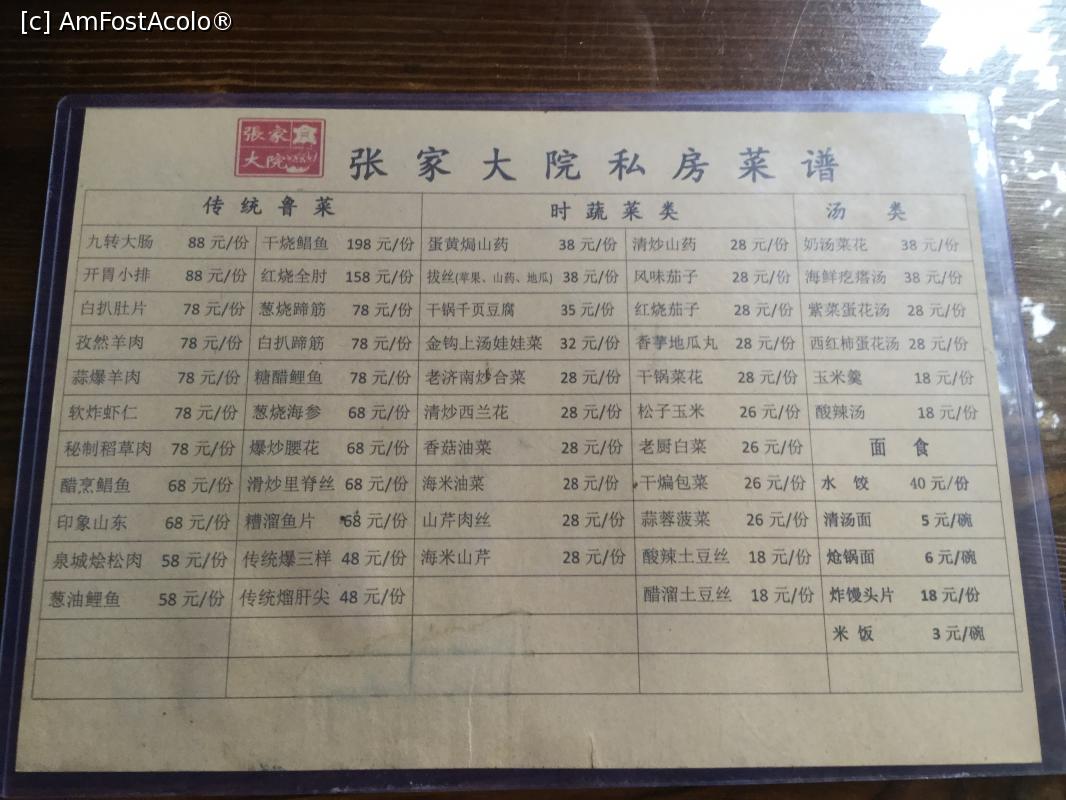 [c] AmFostAcolo®
張家
大院
张家大院私房菜谱
传统鲁菜 时蔬菜类 汤类
九转大肠 88 元/份 干烧鲳鱼 198 元/份 蛋黄焗山药 38 元/份 清炒山药 28 元/份 奶汤菜花 38 元/份
开胃小排 88 元/份 红烧全肘 158 元/份 拔丝(苹果、山药、地瓜) 38 元/份 风味茄子 28 元/份 海鲜疙瘩汤 38 元/份
白扒肚片 78 元/份 葱烧蹄筋 78 元/份 干锅千页豆腐 35 元/份 红烧茄子 28 元/份 紫菜蛋花汤 28 元/份
孜然羊肉 78 元/份 白扒蹄筋 78 元/份 金钩上汤娃娃菜 32 元/份 香芋地瓜丸 28 元/份 西红柿蛋花汤 28 元/份
蒜爆羊肉 78 元/份 糖醋鲤鱼 78 元/份 老济南炒合菜 28 元/份 干锅菜花 28 元/份 玉米羹 18 元/份
软炸虾仁 78 元/份 葱烧海参 68 元/份 清炒西兰花 28 元/份 松子玉米 26 元/份 酸辣汤 18 元/份
秘制稻草肉 78 元/份 爆炒腰花 68 元/份 香菇油菜 28 元/份 老厨白菜 26 元/份 面食
醋烹鲳鱼 68 元/份 滑炒里脊丝 68 元/份 海米油菜 28 元/份 干煸包菜 26 元/份 水饺 40 元/份
印象山东 68 元/份 糟溜鱼片 68 元/份 山芹肉丝 28 元/份 蒜蓉菠菜 26 元/份 清汤面 5 元/碗
泉城烩松肉 58 元/份 传统爆三样 48 元/份 海米山芹 28 元/份 酸辣土豆丝 18 元/份 炝锅面 6 元/碗
葱油鲤鱼 58 元/份 传统熘肝尖 48 元/份 醋溜土豆丝 18 元/份 炸馒头片 18 元/份
米饭 3 元/碗